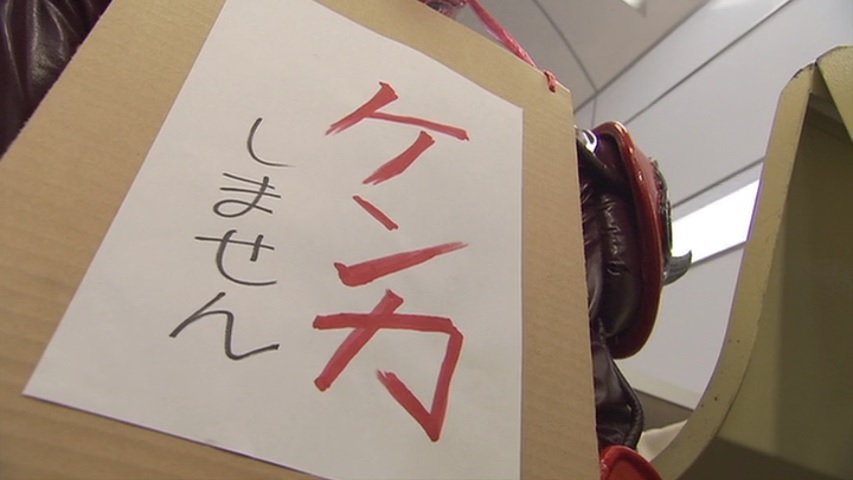 ケンカ
しません